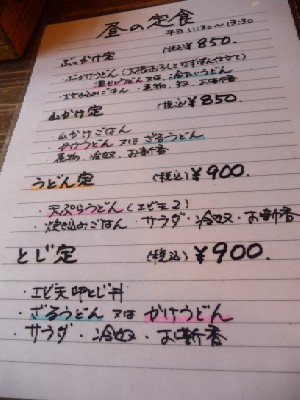 昼の定食
平日 11:30~13:30
ぶっかけ定 (税込)¥850.
・ぶっかけうどん(大根おろしと
冷たいうどん
・炊き込みごはん・煮物・冷奴・お新香
山かけ定 (税込)¥850.
・山かけごはん
・かけうどん 又は ざるうどん
・煮物・冷奴・お新香
うどん定 (税込)¥900.
・天ぷらうどん(エビ天2)
・炊き込みごはん・サラダ・冷奴・お新香
とじ定 (税込)¥900.
・エビ天卵とじ丼
・ざるうどん 又は かけうどん
・サラダ・冷奴・お新香